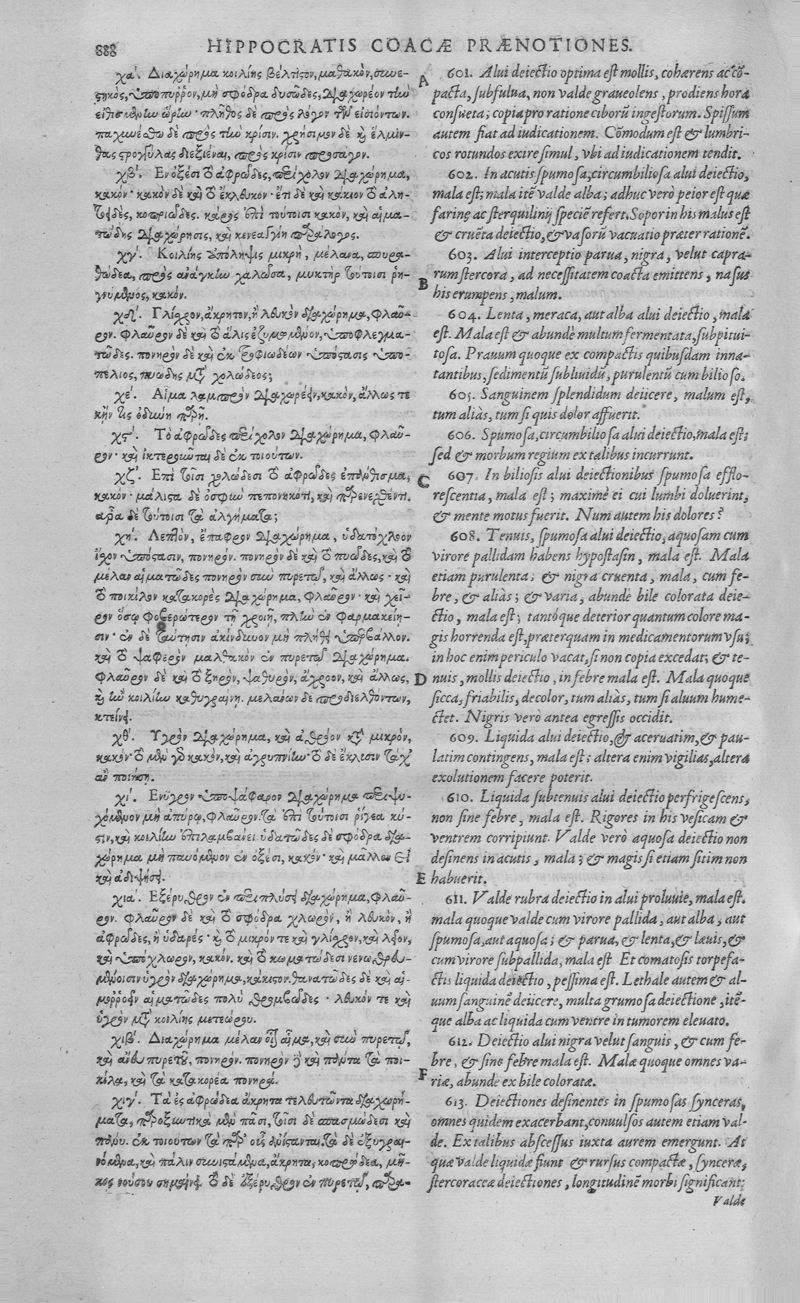 888 HIPPOCRATIS COACÆ PRÆNOTIONES.
χα΄. Διαχώρημα κοιλίης βέλτιστον, μαθακὸν, συνε-
στηκὸς, ὑπόπυρρον, μὴ σφόδρα δυσῶδες, διαχωρέον τὴν
εἰθισμένην ὥρην· πλῆθος δὲ πρὸς λόγον τῶν εἰσιόντων.
παχυνέσθω δὲ πρὸς τὴν κρίσιν. χρήσιμον δὲ καὶ ἕλμιν-
θας στρογγύλας διεξιέναι, πρὸς κρίσιν προσάγον.
χβ΄. Ἐν ὀξέσι τὸ ἀφρῶδες, περίχολον διαχώρημα,
κακόν· κακὸν δὲ καὶ τὸ ἔκλευκον· ἔτι δὲ καὶ κάκιον τὸ ἀλη-
τῶδες, κοπριῶδες. κάρος ἐπὶ τούτοισι κακὸν, καὶ αἱμα-
τώδης διαχώρησις, καὶ κενεαγγίη παράλογος.
χγ΄. Κοιλίης ὑπόληψις μικρὴ, μέλαινα, σπυρα-
θώδεα, πρὸς ἀνάγκην χαλῶσα, μυκτὴρ τούτοισι ῥη-
γνύμενος, κακόν.
χδ΄. Γλίσχρον, ἄκρητον, ἢ λευκὸν διαχώρημα, φλαῦ-
ρον. φλαῦρον δὲ καὶ τὸ ἅλις ἐζυμωμένον, ὑποφλεγμα-
τῶδες. πονηρὸν δὲ καὶ ἐκ τροφιωδέων ὑπόστασις ὑπο-
πέλιος, πυώδης μετὰ χολώδεος;
χε΄. Αἷμα λαμπρὸν διαχωρέειν, κακὸν, ἄλλως τε
κἤν τις ὀδύνη παρῇ.
χϛ΄. Τὸ ἀφρῶδες περίχολον διαχώρημα, φλαῦ-
ρον· καὶ ἰκτεροῦνται δὲ ἐκ τοιούτων.
χζ΄. Ἐπὶ τοῖσι χολώδεσι τὸ ἀφρῶδες ἐπάνθισμα,
κακόν· μάλιστα δὲ ὀσφὺν πεπονηκότι, καὶ παρενεχθέντι.
ἆρα δὲ τούτοισι τὰ ἀλγήματα;
χη΄. Λεπτὸν, ἔπαφρον διαχώρημα, ὑδατόχλοον
ἔχον ὑπόστασιν, πονηρόν. πονηρὸν δὲ καὶ τὸ πυῶδες, καὶ τὸ
μέλαν αἱματῶδες πονηρὸν σὺν πυρετῷ, καὶ ἄλλως· καὶ
τὸ ποικίλον κατακορὲς διαχώρημα, φλαῦρον· καὶ χεῖ-
ρον ὅσῳ φοβερώτερον τῇ χροιῇ, πλὴν ἐν φαρμακείῃ-
σιν· ἐν δὲ ταύτῃσιν ἀκίνδυνον μὴ πλήθει ὑπερβάλλον.
καὶ τὸ ψαφερὸν μαλθακὸν ἐν πυρετῷ διαχώρημα.
φλαῦρον δὲ καὶ τὸ ξηρὸν, ψαθυρὸν, ἄχροον, καὶ ἄλλως,
καὶ ἢν κοιλίην καθυγραίνῃ. μελάνων δὲ προδιελθόντων,
κτείνει.
χθ΄. Ὑγρὸν διαχώρημα, καὶ ἀθρόον κατὰ μικρὸν,
κακόν· τὸ μὲν γὰρ κακὸν, καὶ ἀγρυπνίην· τὸ δὲ ἔκλυσιν τάχ᾽
ἂν ποιήσῃ.
χι΄. Ἔνυγρον ὑπόψαφαρον διαχώρημα περιψυ-
χόμενον μὴ ἀπύρῳ, φλαῦρον. τὰ ἐπὶ τούτοισι ῥίγεα κύ-
στιν, καὶ κοιλίην ἐπιλαμβάνει. ὑδατῶδες δὲ σφόδρα δια-
χώρημα μὴ παυόμενον ἐν ὀξέσι, κακόν· καὶ μᾶλλον εἰ
καὶ ἀδιψήσῃ.
χια΄. Ἐξέρυθρον ἐν περιπλύσει διαχώρημα, φλαῦ-
ρον. φλαῦρον δὲ καὶ τὸ σφόδρα χλωρὸν, ἢ λευκὸν, ἢ
ἀφρῶδες, ἢ ὑδαρές· καὶ τὸ μικρόν τε καὶ γλίσχρον, καὶ λεῖον,
καὶ ὑπόχλωρον, κακόν. καὶ τὸ κωματώδεσι νενωθρευ-
μένοισιν ὑγρὸν διαχώρημα, κάκιστον. θανατῶδες δὲ καὶ αἱ-
μόρροον αἱματῶδες πολὺ θρομβῶδες· λευκόν τε καὶ
ὑγρὸν μετὰ κοιλίης μετεώρου.
χιβ΄. Διαχώρημα μέλαν οἷον αἷμα, καὶ σὺν πυρετῷ,
καὶ ἄνευ πυρετοῦ, πονηρόν. πονηρὰ δὲ καὶ πάντα τὰ ποι-
κίλα, καὶ τὰ κατακορέα πονηρά.
χιγ΄. Τὰ ἐς ἀφρώδεα ἄκρητα τελευτῶντα διαχωρή-
ματα, παροξυντικὰ μὲν πᾶσι, τοῖσι δὲ σπασμώδεσι καὶ
πάνυ. ἐκ τοιούτων τὰ παρ᾽ οὖς ἀνίσταται, τὰ δὲ ἐξυγραι-
νόμενα, καὶ πάλιν συνιστάμενα, ἄκρητα, κοπρώδεα, μῆ-
κος νούσου σημαίνει. τὸ δὲ ἐξέρυθρον ἐν πυρετῷ, παρα-
A 601. Alui deiectio optima est mollis, cohærens ac cō-
pacta, subfulua, non valde graueolens, prodiens hora
consueta; copia pro ratione ciborũ ingestorum. Spissum
autem fiat ad iudicationem. Cōmodum est & lumbri-
cos rotundos exire simul, vbi ad iudicationem tendit.
602. In acutis spumosa, circumbiliosa alui deiectio,
mala est; mala itē valde alba; adhuc verò peior est quæ
farinę ac sterquilinij speciē refert. Sopor in his malus est
& cruēta deiectio, & vasorũ vacuatio præter rationē.
603. Alui interceptio parua, nigra, velut capra-
B rum stercora, ad necessitatem coacta emittens, nasus
his erumpens, malum.
604. Lenta, meraca, aut alba alui deiectio, mala
est. Mala est & abundè multum fermentata, subpitui-
tosa. Prauum quoque ex compactis quibusdam inna-
tantibus, sedimentũ subliuidũ, purulentũ cum bilioso.
605. Sanguinem splendidum deiicere, malum est,
tum aliàs, tum si quis dolor affuerit.
606. Spumosa, circumbiliosa alui deiectio, mala est;
sed & morbum regium ex talibus incurrunt.
C 607. In biliosis alui deiectionibus spumosa efflo-
rescentia, mala est; maximè ei cui lumbi doluerint,
& mente motus fuerit. Num autem his dolores?
608. Tenuis, spumosa alui deiectio, aquosam cum
virore pallidam habens hypostasin, mala est. Mala
etiam purulenta; & nigra cruenta, mala, cum fe-
bre, & aliàs; & varia, abundè bile colorata deie-
ctio, mala est; tantóque deterior quantum colore ma-
gis horrenda est, præterquam in medicamentorum vsu;
in hoc enim periculo vacat, si non copia excedat; & te-
D nuis, mollis deiectio, in febre mala est. Mala quoque
sicca, friabilis, decolor, tum aliàs, tum si aluum hume-
ctet. Nigris verò antea egressis occidit.
609. Liquida alui deiectio, & aceruatim, & pau-
latim contingens, mala est: altera enim vigilias, altera
exolutionem facere poterit.
610. Liquida subtenuis alui deiectio perfrigescens,
non sine febre, mala est. Rigores in his vesicam &
ventrem corripiunt. Valde verò aquosa deiectio non
desinens in acutis, mala; & magis si etiam sitim non
E habuerit.
611. Valde rubra deiectio in alui proluuie, mala est.
mala quoque valde cum virore pallida, aut alba, aut
spumosa, aut aquosa; & parua, & lenta, & læuis, &
cum virore subpallida, mala est Et comatosis torpefa-
ctis liquida deiectio, pessima est. Lethale autem & al-
uum sanguinē deiicere, multa grumosa deiectionē, itē-
que alba ac liquida cum ventre in tumorem eleuato.
612. Deiectio alui nigra velut sanguis, & cum fe-
bre, & sine febre mala est. Malæ quoque omnes va-
F riæ, abundè ex bile coloratæ.
613. Deiectiones desinentes in spumosas synceras,
omnes quidem exacerbant, conuulsos autem etiam val-
de. Ex talibus abscessus iuxta aurem emergunt. At
quæ valde liquidæ fiunt & rursus compactæ, synceræ,
stercoraceæ deiectiones, longitudinē morbi significant:
Valde